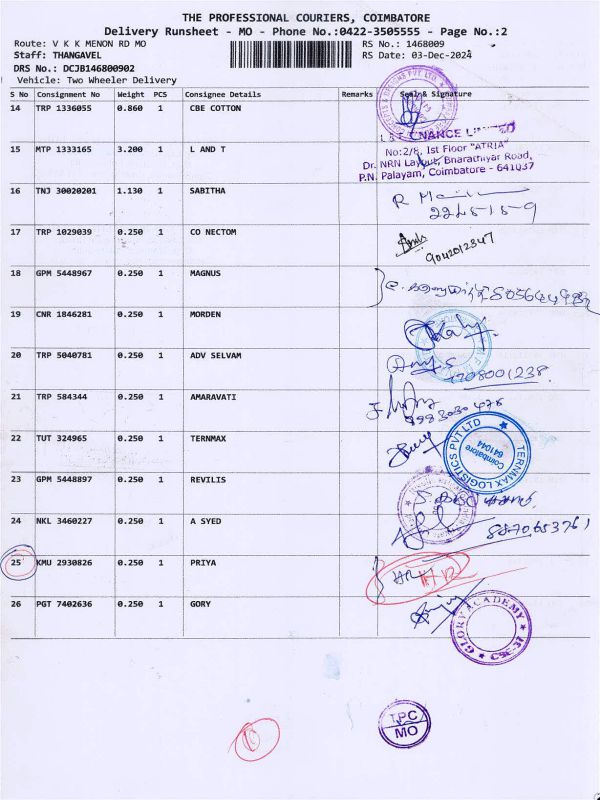 THE PROFESSIONAL COURIERS, COIMBATORE
Delivery Runsheet - MO - Phone No.:0422-3505555 - Page No.:2
Route: V K K MENON RD MO
RS No.: 1468009
Staff: THANGAVEL
RS Date: 03-Dec-2024
DRS No.: DCJB146800902
Vehicle: Two Wheeler Delivery
S No Consignment No Weight PCS Consignee Details Remarks Seal & Signature
14 TRP 1336055 0.860 1 CBE COTTON
L&T FINANCE LIMITED
15 MTP 1333165 3.200 1 L AND T
No:2/8, Ist Floor "ATRIA"
Dr. NRN Layout, Bharathiyar Road,
P.N. Palayam, Coimbatore - 641037
16 TNJ 30020201 1.130 1 SABITHA
17 TRP 1029039 0.250 1 CO NECTOM
9042012847
18 GPM 5448967 0.250 1 MAGNUS
19 CNR 1846281 0.250 1 MORDEN
20 TRP 5040781 0.250 1 ADV SELVAM
21 TRP 584344 0.250 1 AMARAVATI
22 TUT 324965 0.250 1 TERNMAX
TERNMAX LOGISTICS PVT LTD
Coimbatore
641044
23 GPM 5448897 0.250 1 REVILIS
24 NKL 3460227 0.250 1 A SYED
8870653761
25 KMU 2930826 0.250 1 PRIYA
26 PGT 7402636 0.250 1 GORY
GLORY ACADEMY
TPC
MO